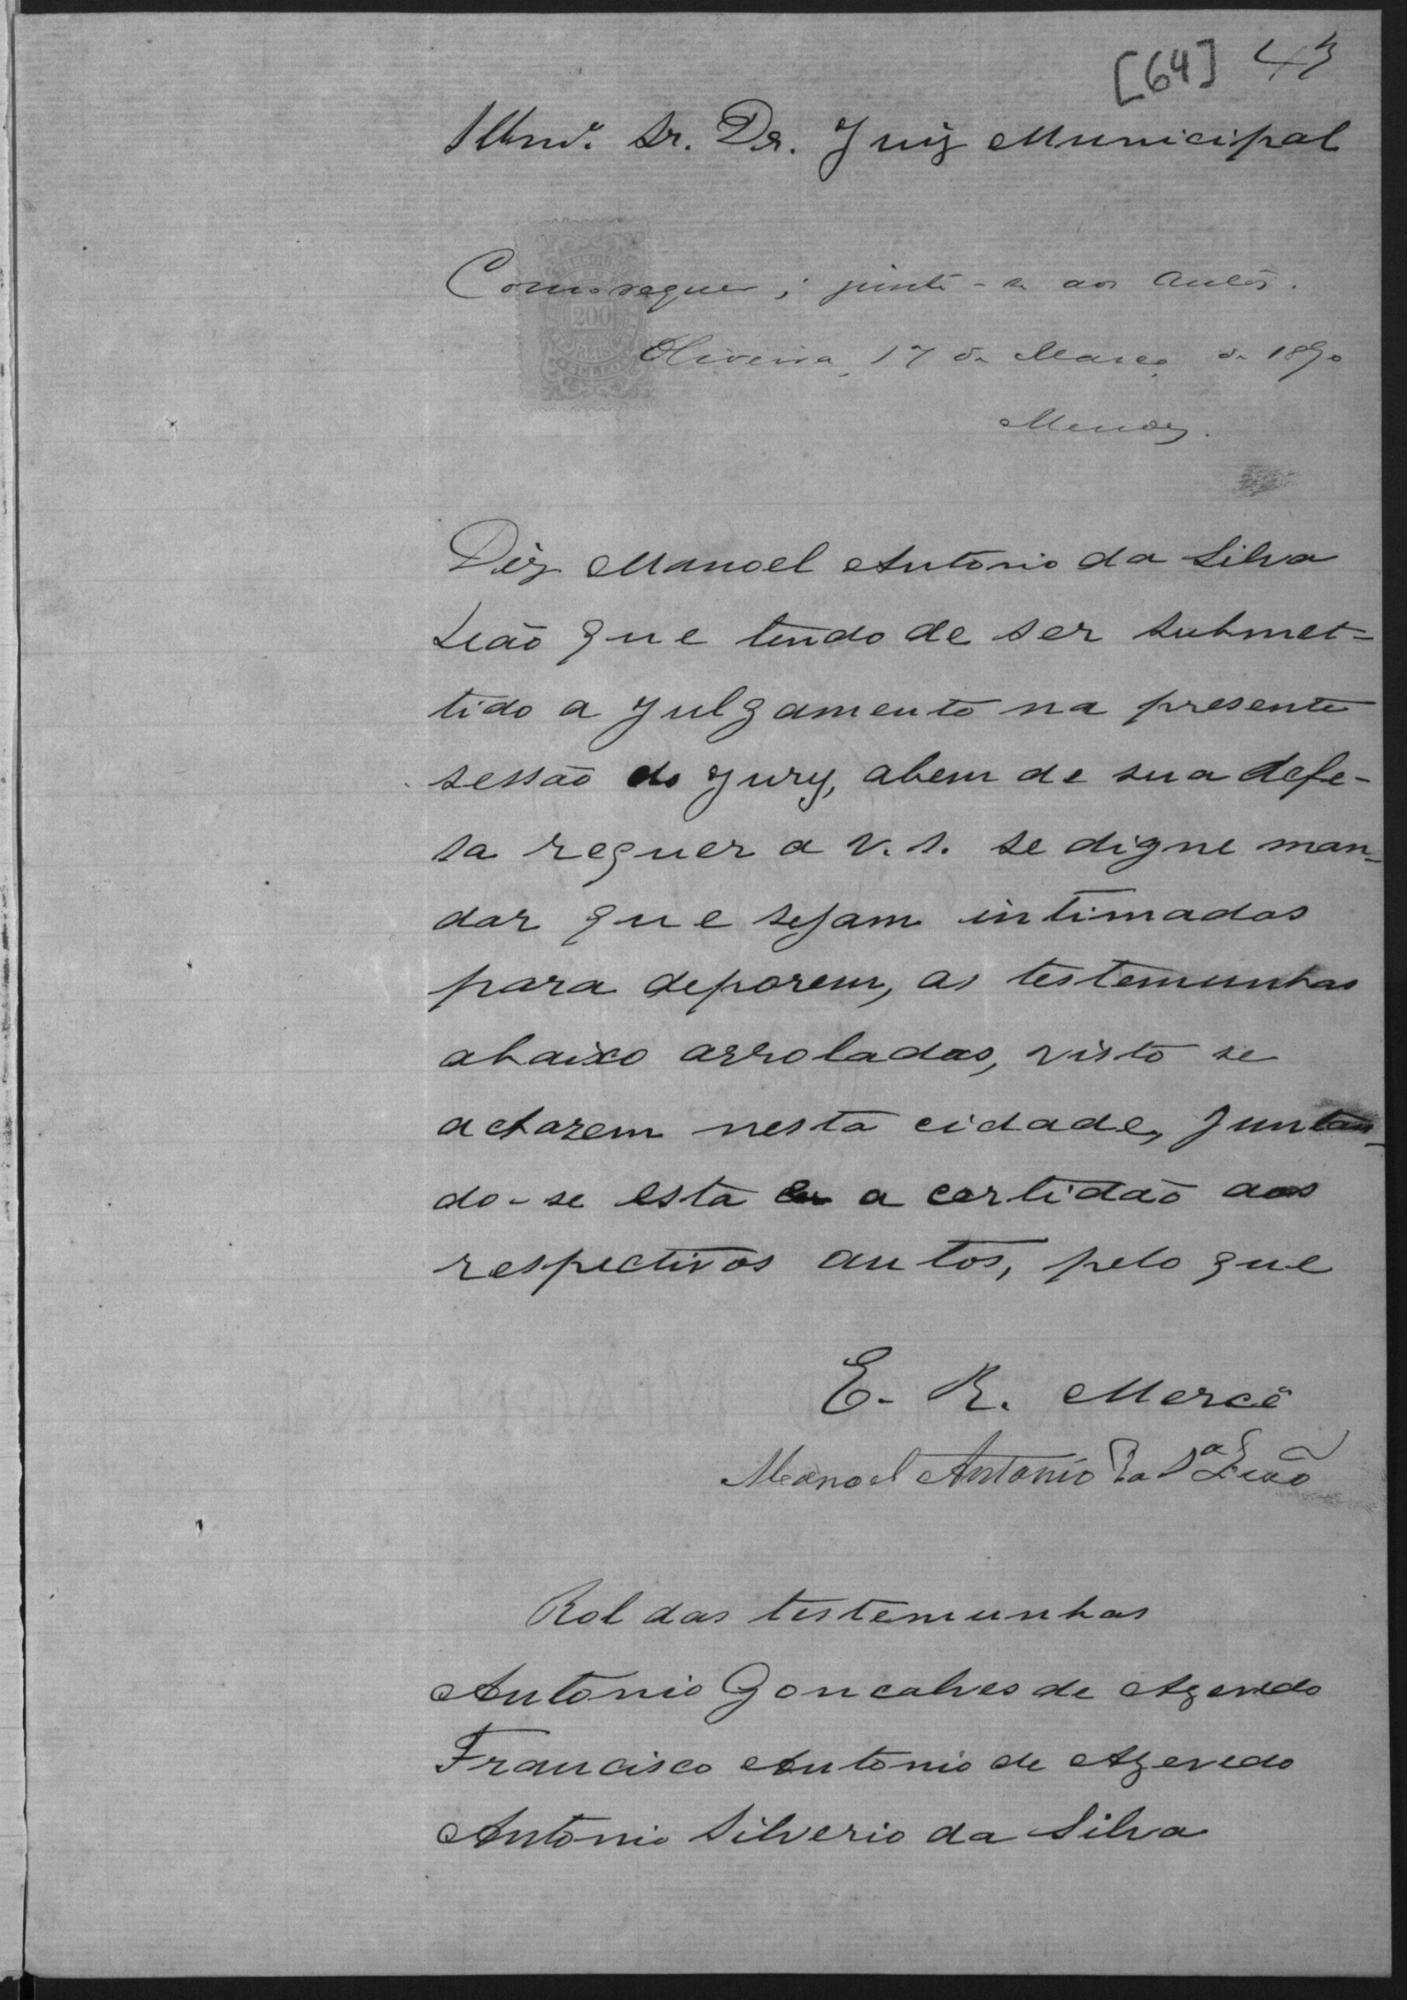 [64] 43
Illmo. Sr. Dr. Juiz Municipal
Como requer; junte-se aos autos.
Oliveira, 17 de Março de 1890
Mendes.
200
REIS
Diz Manoel Antonio da Silva
Leão que tendo de ser submet-
tido a julgamento na presente
sessão do jury, abem de sua defe-
sa requer a V. S. se digne man-
dar que sejam intimadas
para deporem, as testemunhas
abaixo arroladas, visto se
acharem nesta cidade, juntan-
do-se esta e a certidão aos
respectivos autos, pelo que
E. R. Mercê
Manoel Antonio da Sa. Leão
Rol das testemunhas
Antonio Goncalves de Azevedo
Francisco Antonio de Azevedo
Antonio Silverio da Silva